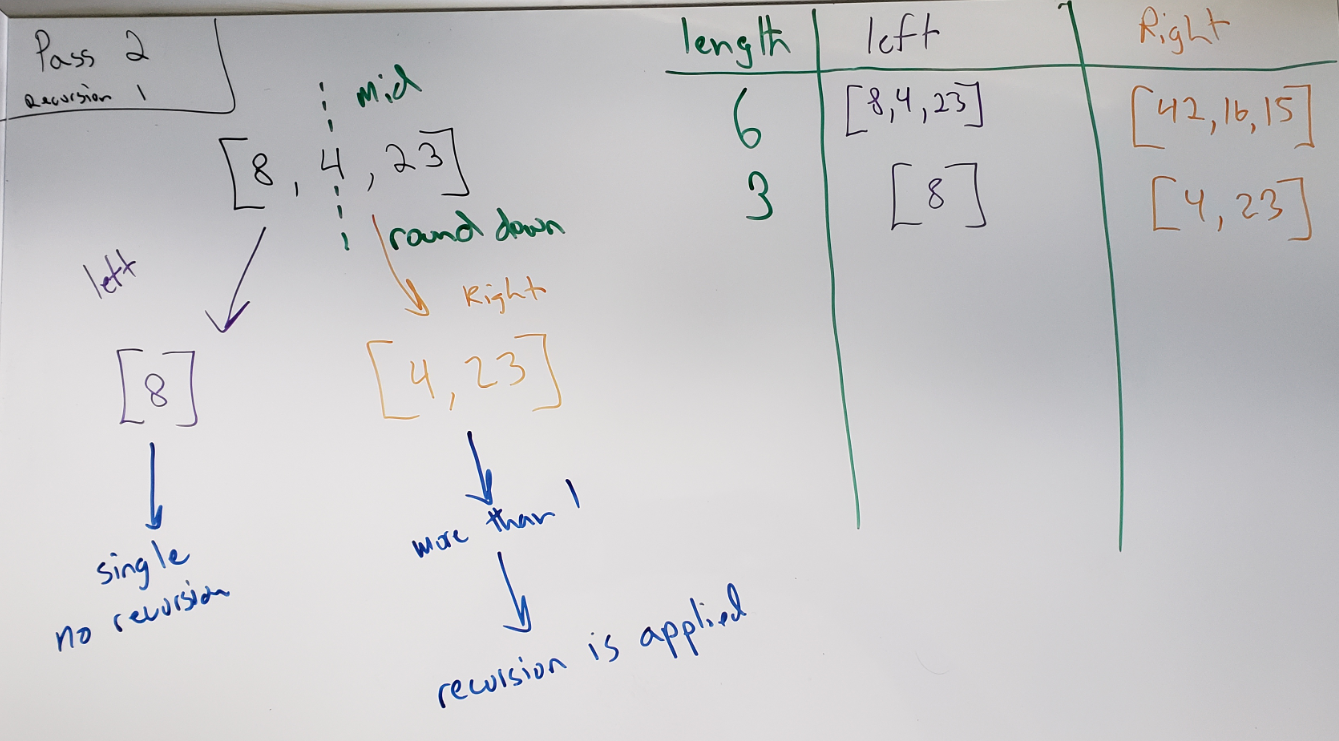 Pass 2
Recursion 1
mid
[8, 4, 23]
round down
left
Right
[8]
[4, 23]
single
no recursion
more than 1
recursion is applied
length left Right
6 [8,4,23] [42,16,15]
3 [8] [4, 23]